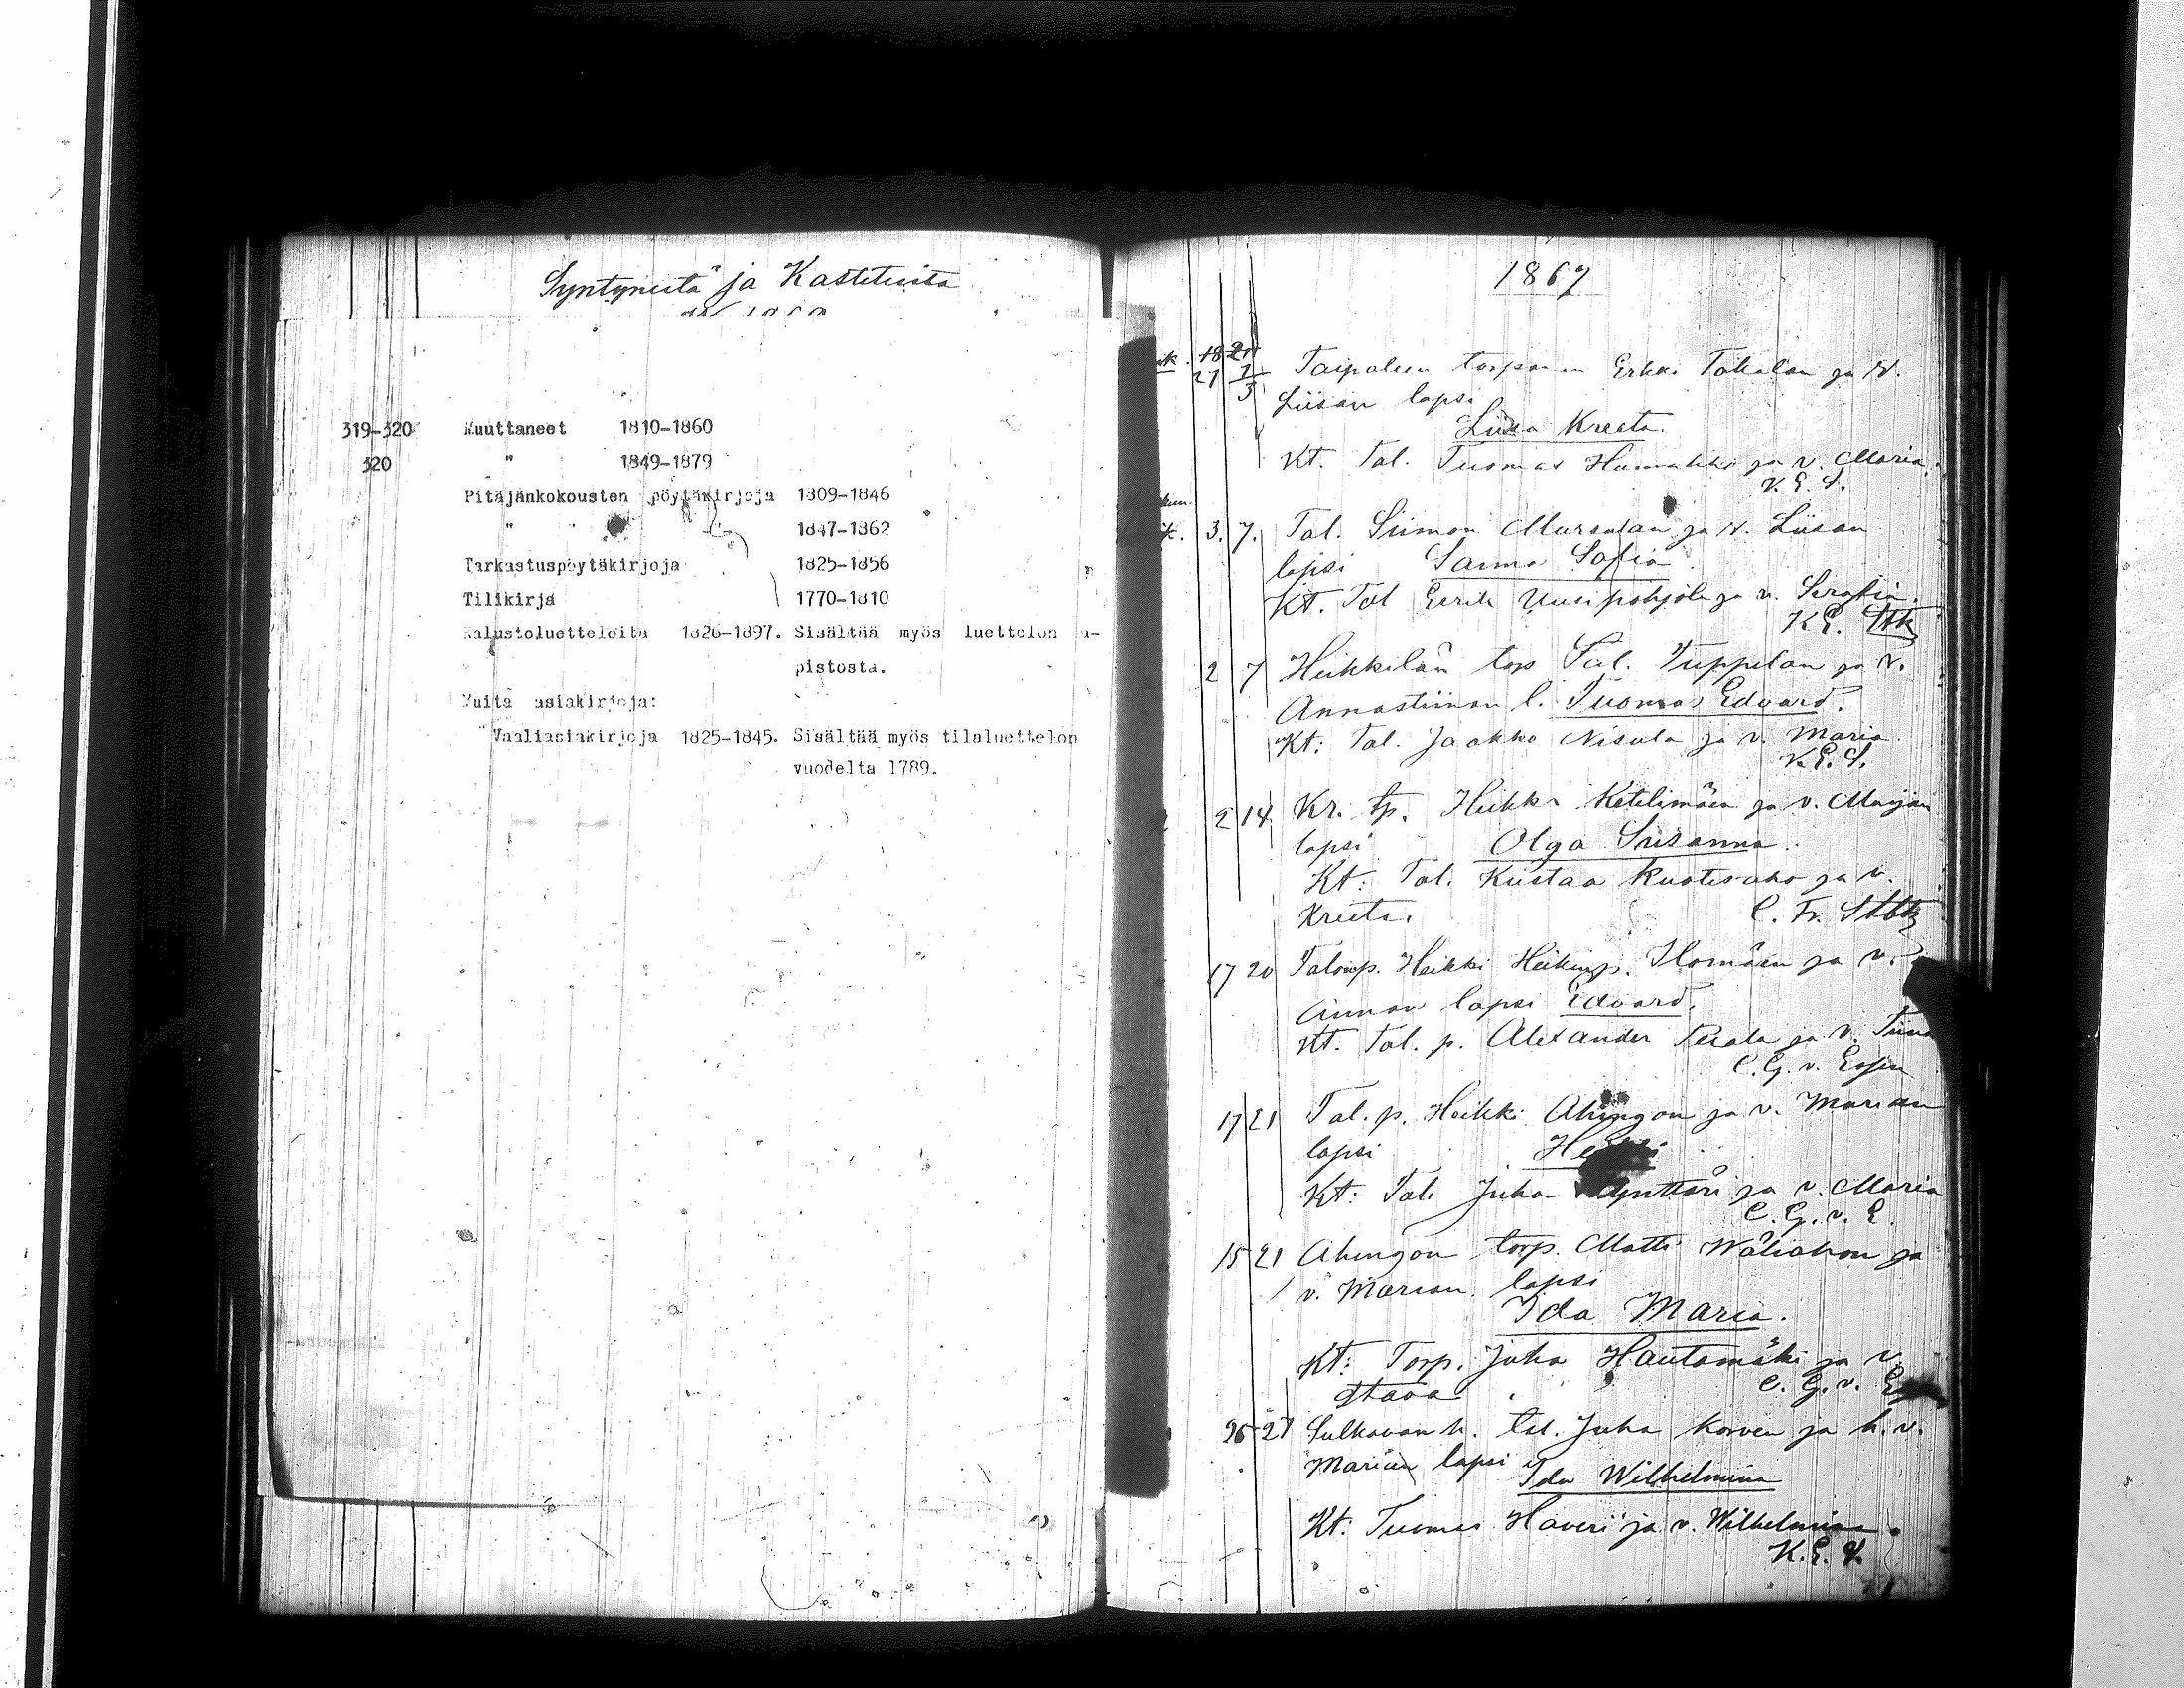 Syntyneitä ja Kastetuita
319-320 Muuttaneet 1810-1860
320 " 1849-1879
Pitäjänkokousten pöytäkirjoja 1809-1846
" 1847-1862
Tarkastuspöytäkirjoja 1825-1856
Tilikirja 1770-1810
Kalustoluetteloita 1826-1897. Sisältää myös luettelon
pistosta.
Muita asiakirjoja:
Vaaliasiakirjoja 1825-1845. Sisältää myös tilaluettelon
vuodelta 1789.
1867
Taipaleen Erkki Takalan ja v.
Liisan lapsi
Liisa Kreeta.
Kt. Tal. Tuomas ja v. Maria.
K. E. S.
3. 7. Tal. Siimon Mursulan ja v. Liisan
lapsi Sanna Sofia
Kt. Tal Eerik Uusipohjola ja v. Serafia.
K E.
2 7 Heikkilän torp Tuppelan ja v.
Annastiinan l. Tuomas Edvard.
Kt: Tal. Jaakko Nisula ja v. Maria.
K. E. S.
2 14 Kr. tp. Heikki Ketelimäen ja v. Marjan
lapsi Olga Susanna.
Kt: Tal. Kustaa ja v.
Kreeta.
17 20 Talonp. Heikki Heikinp. ja v.
Annan lapsi Edvard.
Kt. Tal. p. Alexander Perala ja v.
C. G. v. Essen
17 21 Tal. p. Heikki Ahingon ja v. Marian
lapsi Heikki
Kt: Tal. Juha ja v. Maria
C. G. v. E.
15 21 Ahingon torp. Matti Wäliahon ja
v. Marian lapsi
Ida Maria.
Kt: Torp. Juha Hautamäki ja v.
Staava C. G. v.
26 27 Sulkavan k. tal. Juha Korven ja h. v.
Marian lapsi
Ida Wilhelmina
Kt: Tuomas Haveri ja v. Wilhelmina.
K. E. S.